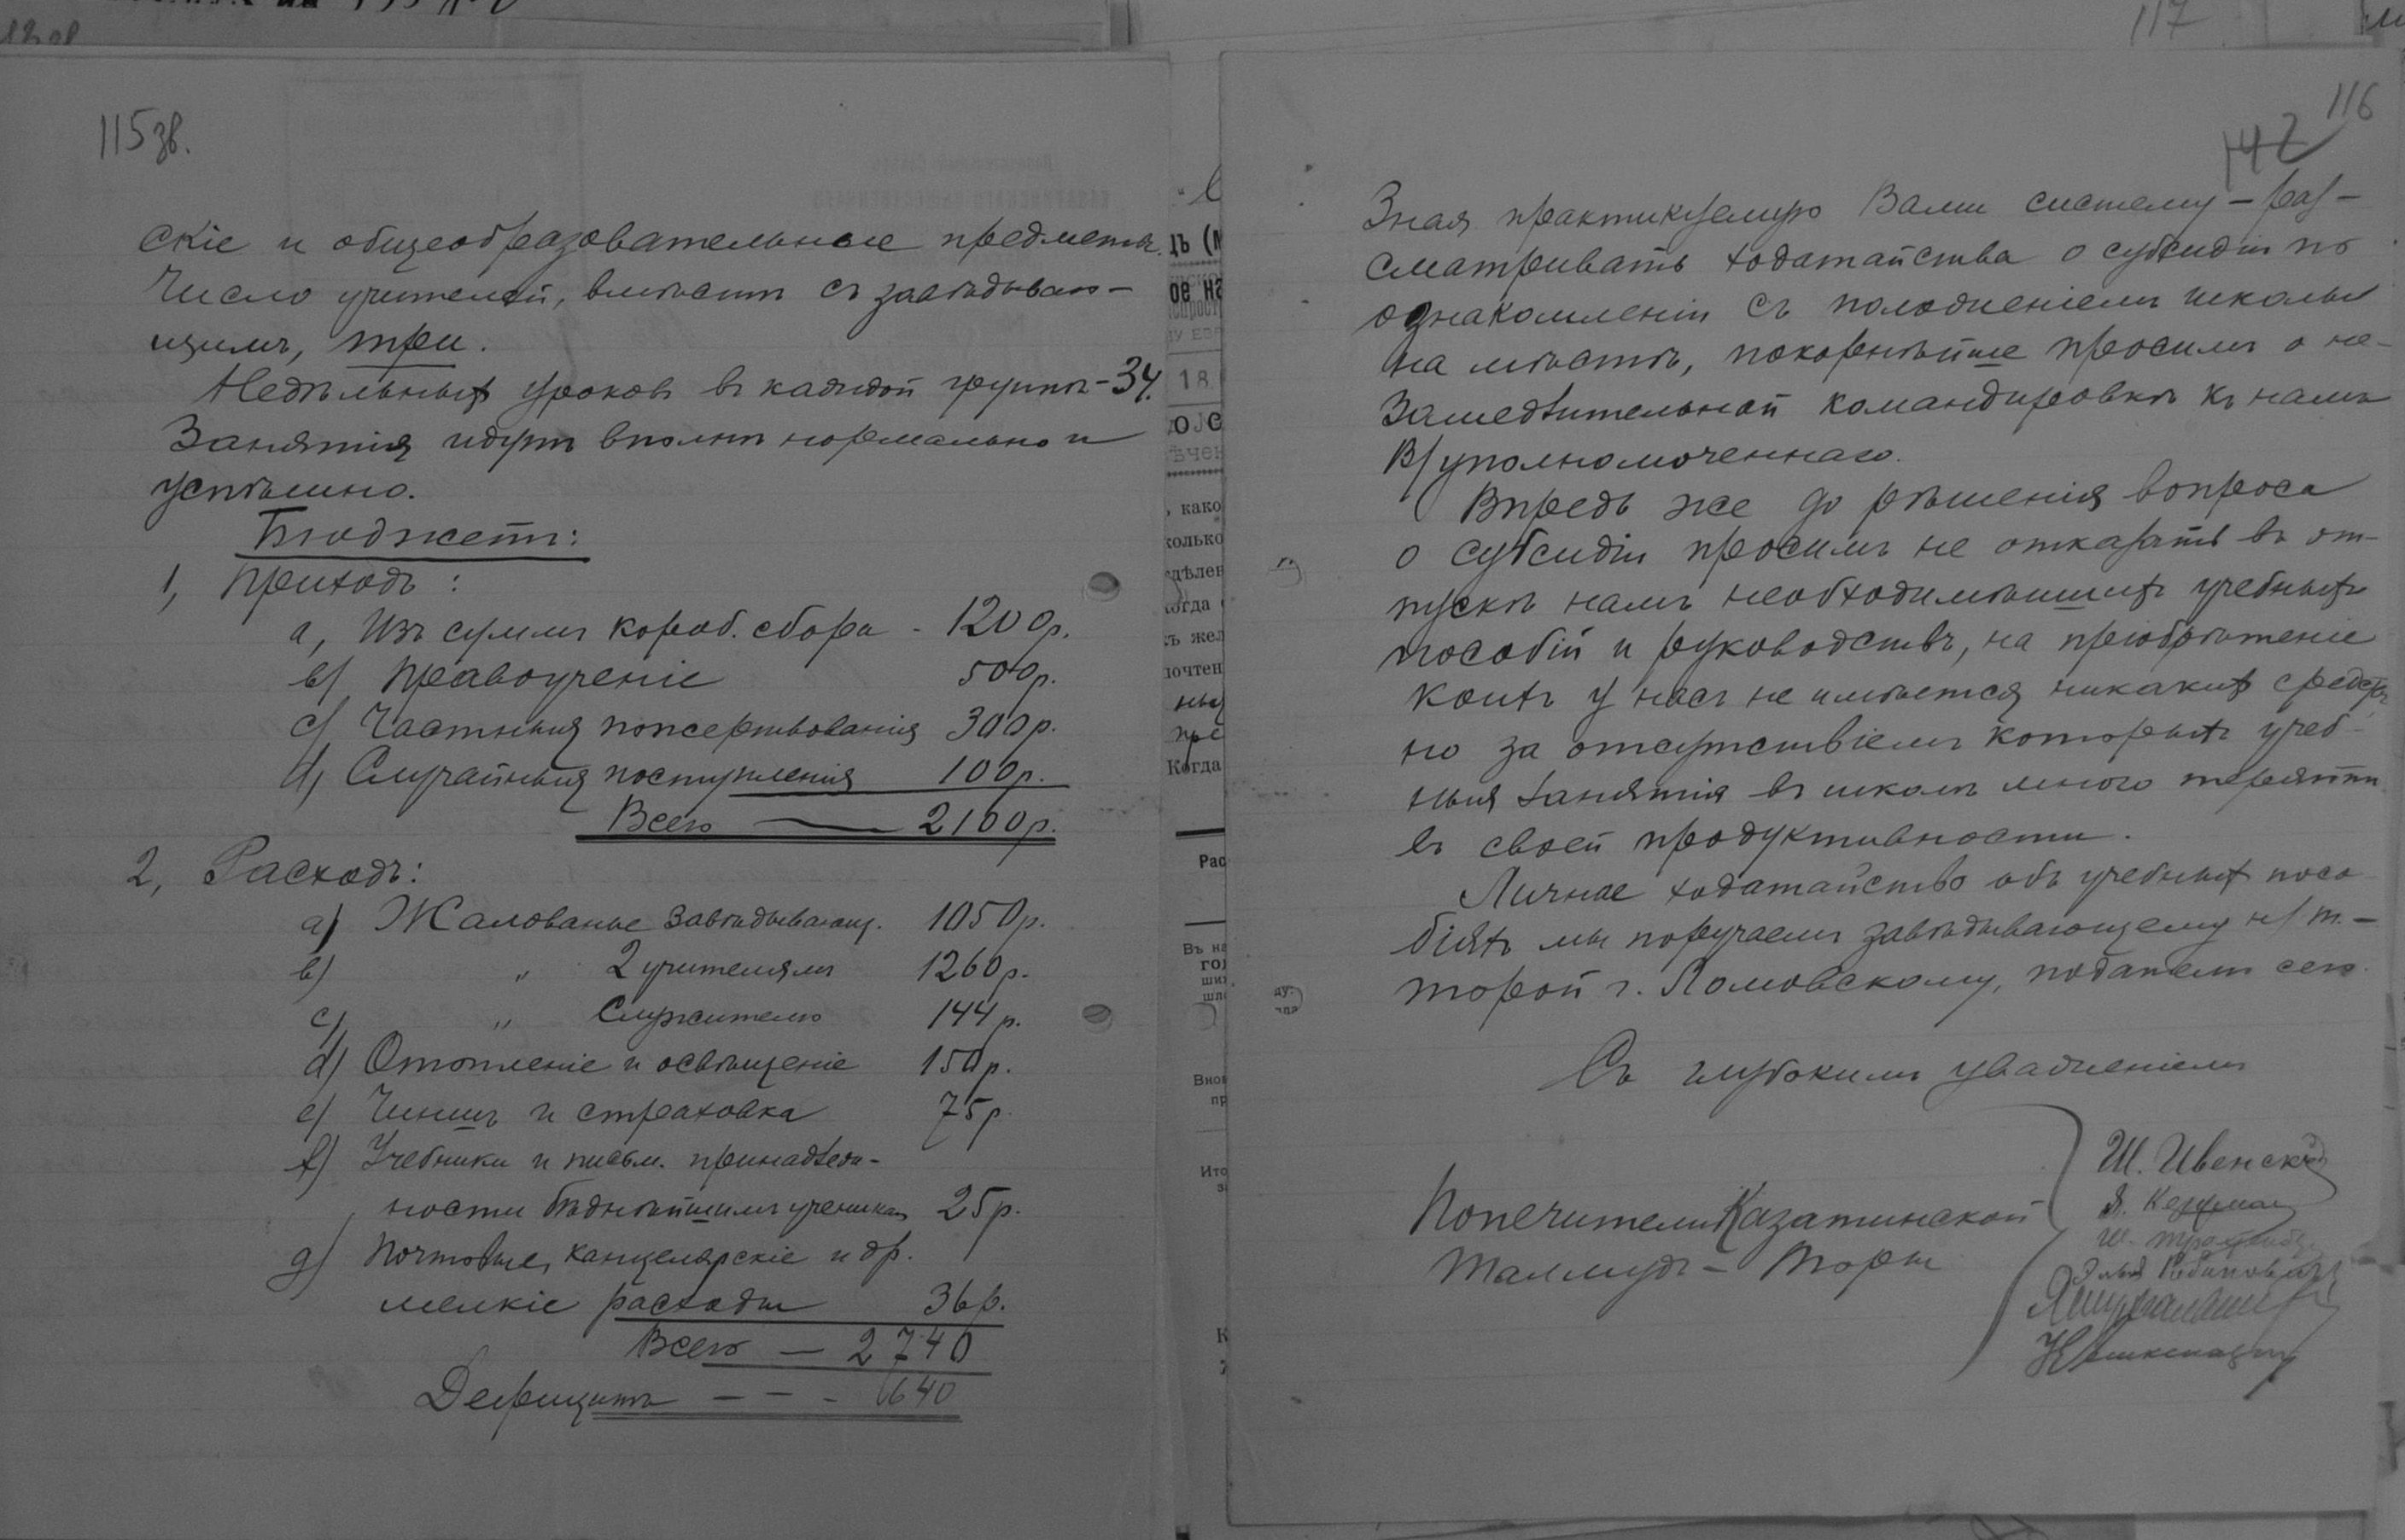 115 зв.
скіе и общеобразовательные предметы.
Число учителей, вмѣстѣ съ завѣдываю-
щимъ, три.
Недѣльныхъ уроковъ въ каждой группѣ - 34.
Занятія идутъ вполнѣ нормально и
успѣшно.
Бюджетъ:
1, Приходъ:
а, Изъ суммъ короб. сбора - 1200р.
b) Правоученіе 500р.
c) Частныя пожертвованія 300р.
d) Случайныя поступленія 100р.
Всего — 2100р.
2, Расходъ:
a) Жалованье завѣдывающ. 1050р.
b) " 2 учителямъ 1260р.
c) " Служителю 144р.
d) Отопленіе и освѣщеніе 150р.
e) Чиншъ и страховка 75р.
f) Учебники и письм. принадлеж-
ности бѣднѣйшимъ ученикам 25р.
g) Почтовые, канцелярскіе и др.
мелкіе расходы 36р.
Всего — 2740
Дефицитъ - - - 640
117
116
142
Зная практикуемую Вами систему - раз-
сматривать ходатайства о субсидіи по
ознакомленіи съ положеніемъ школы
на мѣстѣ, покорнѣйше просимъ о не-
замедлительной командировкѣ къ намъ
В/уполномоченнаго.
Впредь же до рѣшенія вопроса
о субсидіи просимъ не отказать въ от-
пускѣ намъ необходимѣйшихъ учебныхъ
пособій и руководствъ, на пріобрѣтеніе
коихъ у насъ не имѣется никакихъ средствъ
но за отсутствіемъ которыхъ учеб-
ныя занятія въ школѣ много теряютъ
въ своей продуктивности.
Личное ходатайство объ учебныхъ посо-
біяхъ мы поручаемъ завѣдывающему н/т.-
торой г. Ломовскому, подателю сего.
Съ глубокимъ уваженіемъ
Попечители Казатинской
Талмудъ-Торы
Ш. Ивенскій